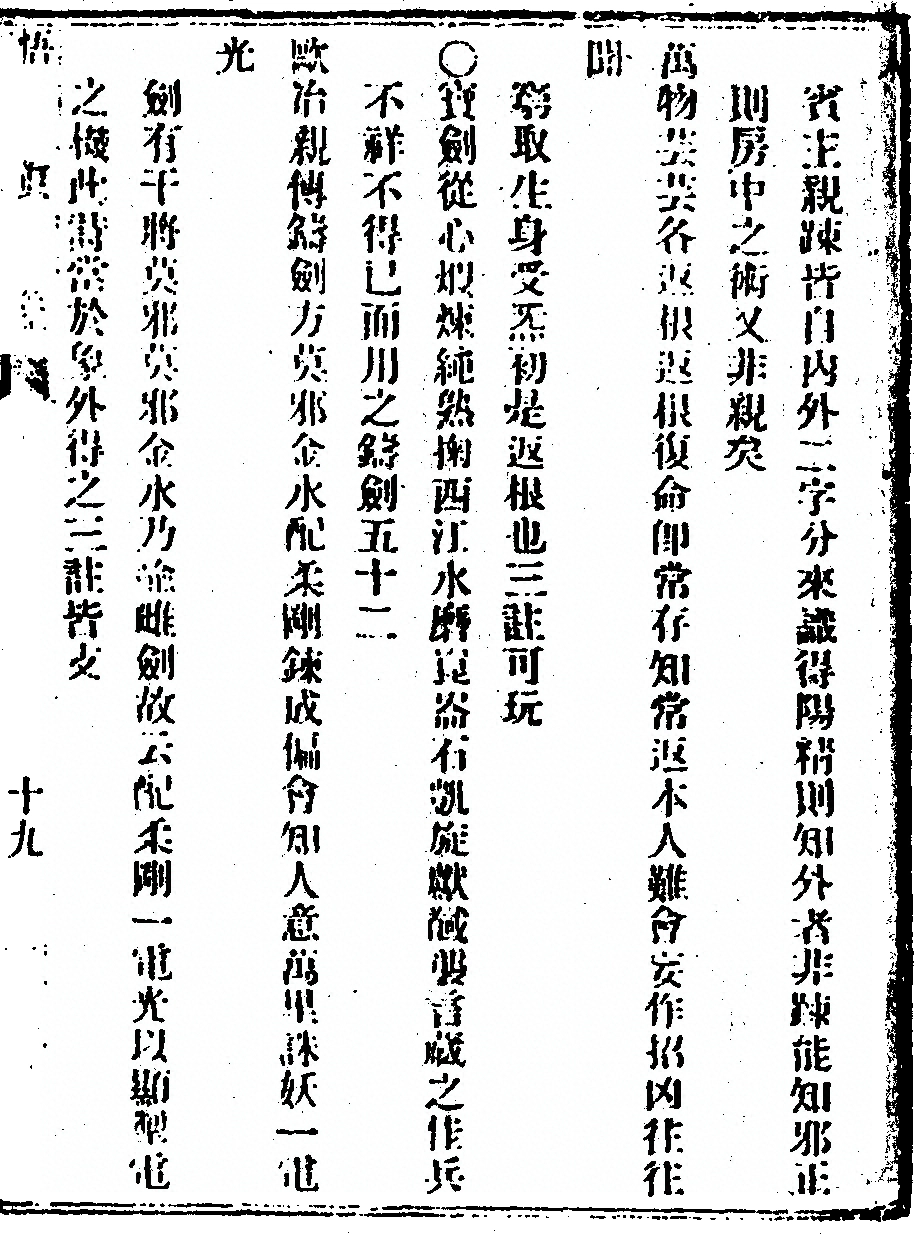 賓主親踈皆自內外二字分來識得陽精則知外者非踈能知邪正
則房中之術又非親矣
萬物芸芸各返根返根復命即常存知常返本人難會妄作招凶往往
聞
窮取生身受炁初是返根也三註可玩
〇寶劍從心煅煉純熟掬西江水磨崑崙石凱旋獻馘襲而藏之佳兵
不祥不得已而用之鑄劍五十二
歐冶親傳鑄劍方莫邪金水配柔剛鍊成偏會知人意萬里誅妖一電
光
劍有干將莫邪莫邪金水乃雌劍故云配柔剛一電光以顯掣電
之機此時當於象外得之三註皆支
悟真
十九